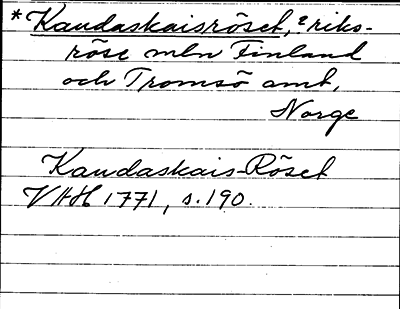 *Kandaskaisröset, riks-
röse mln Finland
och Tromsö amt,
Norge
Kandaskais-Röset
VHH 1771, s. 190.